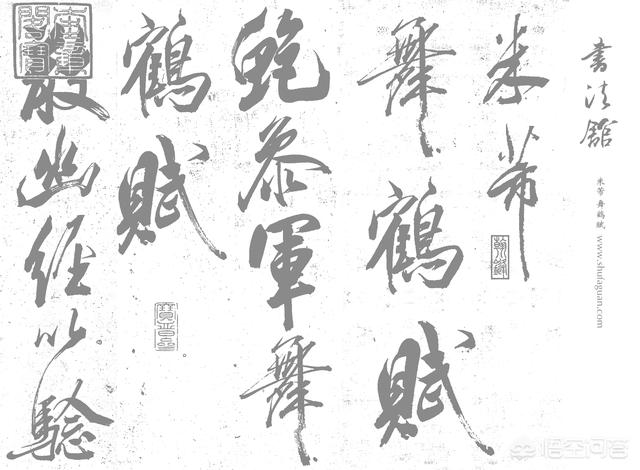 書法館
米芾 舞鶴賦 www.shufaguan.com
米芾
舞鶴賦
鮑參軍舞
鶴賦
散幽經以驗
悟空问答